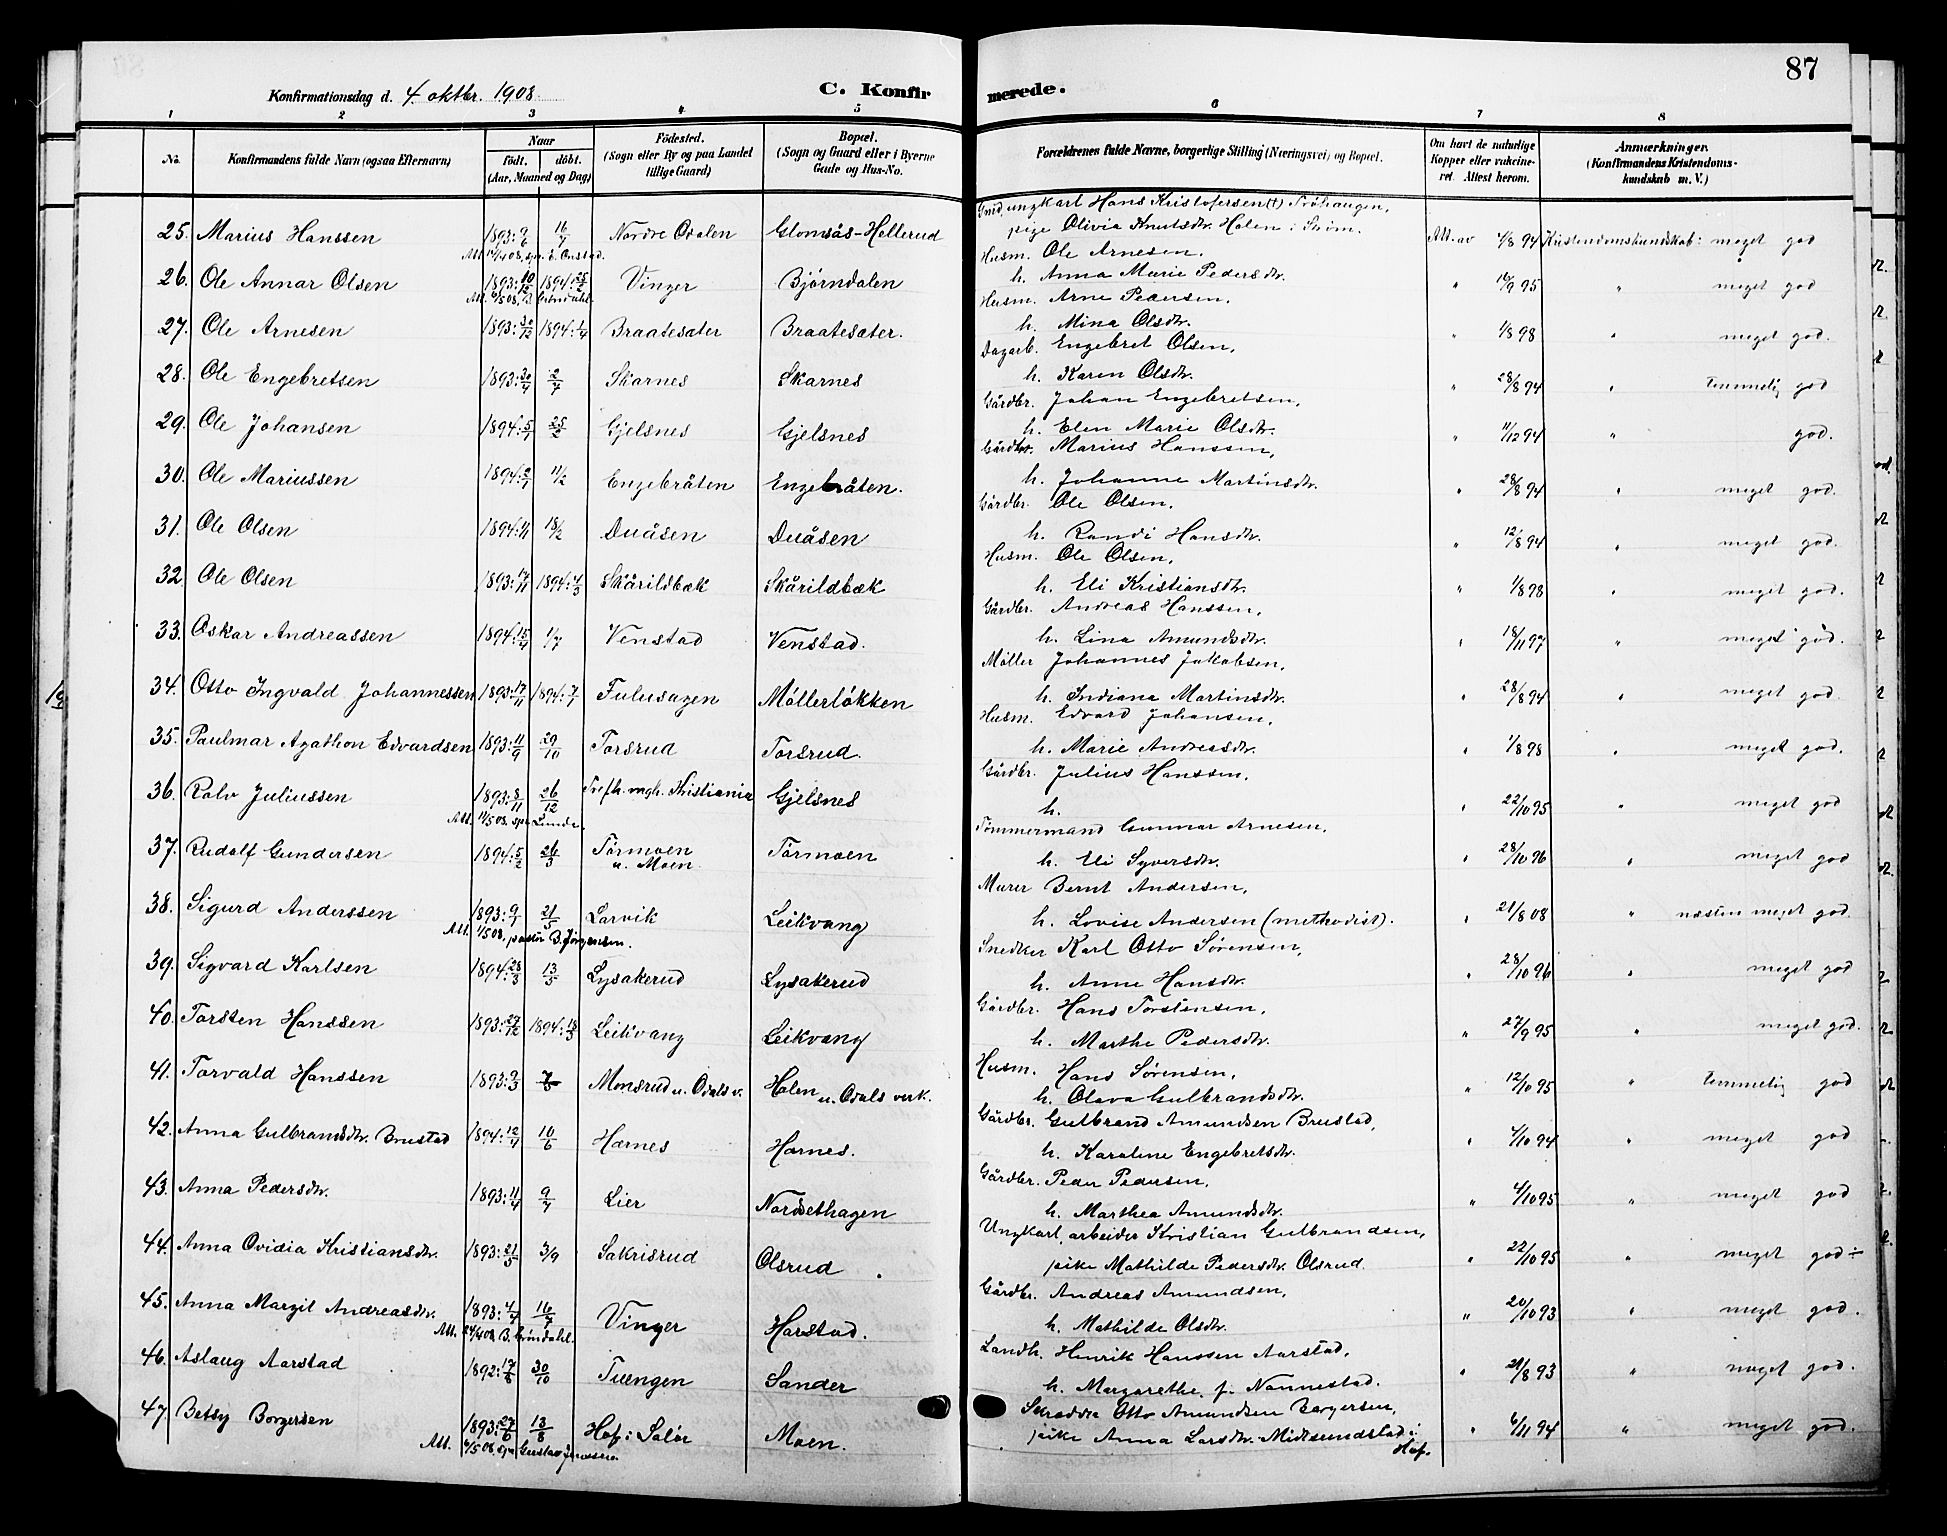 87
Konfirmationsdag d. 4. oktbr. 1908.
C. Konfirmerede.
1 2 3 4 5 6 7 8
No. Konfirmandens fulde Navn (ogsaa Efternavn) Naar født. døbt. (Aar, Maaned og Dag) Fødested. (Sogn eller By og paa Landet tillige Gaard) Bopæl. (Sogn og Gaard eller i Byerne Gade og Hus-No. Forældrenes fulde Navne, borgerlige Stilling (Næringsvei) og Bopæl. Om havt de naturlige Kopper eller vaccineret. Attest herom. Anmærkninger. (Konfirmandens Kristendomskundskab m. V.)
25. Marius Hanssen 1893: 9/6 16/7 Nordre Odalen Glomsås-Hellerud Gmd. ungkarl Hans Kristofersen (†) Tröhaugen, pige Olivia Knutsdtr. Holen i Strøm. Att. av 4/8 94 Kristendomskundskab: meget god
26. Ole Annar Olsen 1893: 10/12 1894: 25/2 Vinger Bjørndalen Husm. Ole Arnesen, h. Anna Marie Pedersdtr. " 16/9 95 " meget god
27. Ole Arnesen 1893: 30/12 1894: 1/4 Braatesæter Braatesæter. Husm. Arne Pedersen, h. Mina Olsdtr. " 1/8 98 " meget god.
28. Ole Engebretsen 1893: 30/4 2/7 Skarnes Skarnes Dagarb. Engebret Olsen, h. Karen Olsdtr. " 28/8 94 " temmelig god
29. Ole Johansen 1894: 5/1 25/2 Gjelsnes Gjelsnes Gårdbr. Johan Engebretsen, h. Elen Marie Olsdtr. " 11/12 94 " god.
30. Ole Mariussen 1894: 2/1 11/2 Engebråten Engebråten. Gårdbr. Marius Hanssen, h. Johanne Martinsdtr. " 28/8 94 " meget god.
31. Ole Olsen 1894: 1/1 18/2 Duåsen Duåsen Gårdbr. Ole Olsen, h. Randi Hansdtr. " 12/8 94 " meget god.
32 Ole Olsen 1893: 17/11 1894: 4/3 Skårildbæk Skårildbæk Husm. Ole Olsen, h. Eli Kristiansdtr. " 1/8 98 " meget god.
33. Oskar Andreassen 1894: 15/4 1/7 Venstad Venstad. Gårdbr. Andreas Hanssen, h. Lina Amundsdtr. " 18/11 97 " meget god.
34. Otto Ingvald Johannessen 1893: 17/11 1894: 1/7 Fulusagen Møllerløkken Møller Johannes Jakobsen, h. Indiana Martinsdtr. " 28/8 94 " meget god.
35. Paulmar Agathon Edvardsen 1893: 11/9 29/10 Torsrud Torsrud. Husm. Edvard Johansen, h. Marie Andreasdtr. " 1/8 98 " meget god.
36. Rolv Juliussen 1893: 8/11 26/12 Trefh. mgh. Kristiania Gjelsnes Gårdbr. Julius Hanssen, h. " 22/10 95 " meget god
37. Rudolf Gundersen 1894: 5/2 26/3 Tørmoen u. Moen Tørmoen Tömmermand Gunnar Arnesen, h. Eli Syversdtr. " 28/10 96 " meget god
38. Sigurd Anderssen 1893: 9/1 21/5 Larvik Leikvang Murer Bernt Andersen, h. Lovise Andersen (methodist). " 21/8 08 " næsten meget god.
Att. 1/5 08. pastor B. Jørgensen.
39. Sigvard Karlsen 1894: 28/3 13/5 Lysakerud Lysakerud Snedker Karl Otto Sørensen, h. Anne Hansdtr. " 28/10 96 " meget god
40. Torsten Hanssen 1893: 27/12 1894: 18/3 Leikvang Leikvang Gårdbr. Hans Torstensen, h. Marthe Pedersdtr. " 27/9 95 " meget god.
41. Torvald Hanssen 1893: 9/3 7/5 Monsrud u. Odals v. Holen u. Odals verk. Husm. Hans Sørensen, h. Olava Gulbrandsdtr. " 12/10 95 " temmelig god
42. Anna Gulbrandsdtr. Brustad 1894: 12/4 10/6 Hornes Hornes. Gårdbr. Gulbrand Amundsen Brustad, h. Karoline Engebretsdtr. " 4/10 94 " meget god
43. Anna Pedersdtr. 1893: 11/4 9/7 Lier Nordsethagen Gårdbr. Peder Pedersen, h. Marthea Amundsdtr. " 4/10 95 " meget god
44. Anna Ovidia Kristiansdtr. 1893: 21/5 3/9 Sakrisrud Olsrud. Ungkarl, arbeider Kristian Gulbrandsen, pike Mathilde Pedersdtr. Olsrud. " 22/10 95 " meget god ÷
45. Anna Margit Andreasdtr. 1893: 4/4 16/7 Vinger Harstad. Gårdbr. Andreas Amundsen, h. Mathilde Olsdtr. " 20/10 93 " meget god.
46. Aslaug Aarstad 1892: 17/8 30/10 Tuengen Sander Landh. Henrik Hanssen Aarstad, h. Margarethe, f. Nannestad. " 21/8 93 " meget god.
47. Betsy Borgersen 1893: 27/6 13/8 Hof i Solør Moen. Skrædder Otto Amundsen Borgersen, pike Anna Larsdtr. Midtsundstad i Hof. " 6/11 94 " meget god.